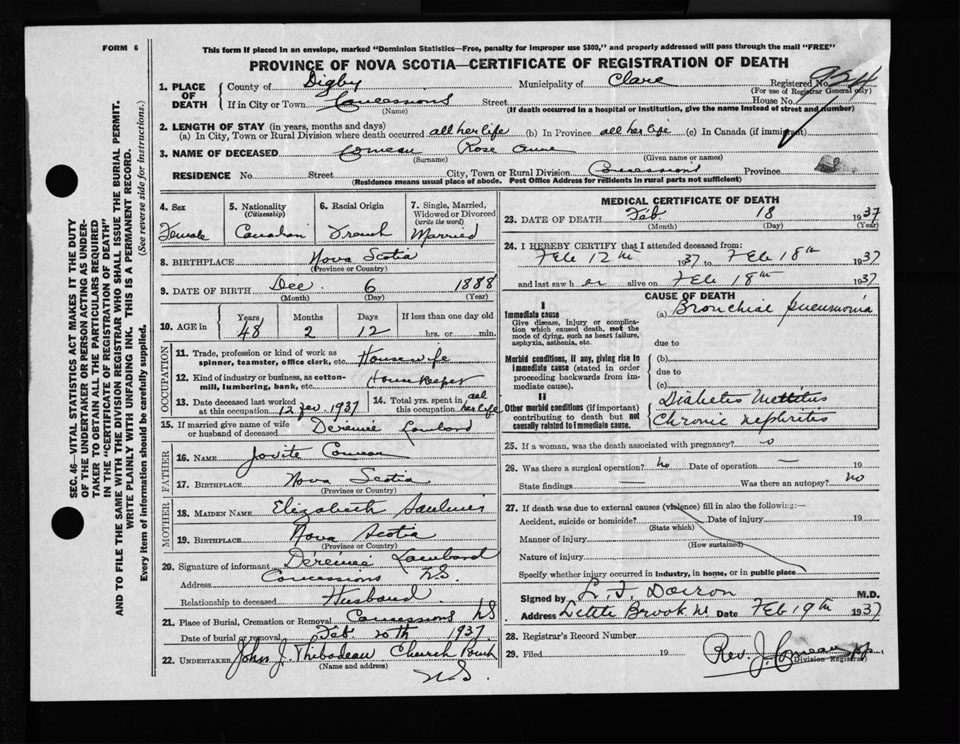 FORM 6
This form if placed in an envelope, marked "Dominion Statistics—Free, penalty for improper use $300," and properly addressed will pass through the mail "FREE"
PROVINCE OF NOVA SCOTIA—CERTIFICATE OF REGISTRATION OF DEATH
1. PLACE OF DEATH County of Digby Municipality of Clare Registered No.
(For use of Registrar General only)
If in City or Town Concessions Street House No.
(Name) (If death occurred in a hospital or institution, give the name instead of street and number)
2. LENGTH OF STAY (in years, months and days)
(a) In City, Town or Rural Division where death occurred all her life (b) In Province all her life (c) In Canada (if immigrant)
3. NAME OF DECEASED Comeau Rose Anne
(Surname) (Given name or names)
RESIDENCE No. Street City, Town or Rural Division Concessions Province
(Residence means usual place of abode. Post Office Address for residents in rural parts not sufficient)
SEC. 46—VITAL STATISTICS ACT MAKES IT THE DUTY
OF THE UNDERTAKER OR PERSON ACTING AS UNDER-
TAKER TO OBTAIN ALL THE PARTICULARS REQUIRED
IN THE "CERTIFICATE OF REGISTRATION OF DEATH"
AND TO FILE THE SAME WITH THE DIVISION REGISTRAR WHO SHALL ISSUE THE BURIAL PERMIT.
WRITE PLAINLY WITH UNFADING INK. THIS IS A PERMANENT RECORD.
Every item of information should be carefully supplied. (See reverse side for instructions.)
4. Sex 5. Nationality 6. Racial Origin 7. Single, Married, Widowed or Divorced
(Citizenship) (write the word)
Female Canadian French Married
8. BIRTHPLACE Nova Scotia
(Province or Country)
9. DATE OF BIRTH Dec. 6 1888
(Month) (Day) (Year)
10. AGE in Years Months Days If less than one day old
48 2 12 hrs. or min.
OCCUPATION
11. Trade, profession or kind of work as spinner, teamster, office clerk, etc. Housewife
12. Kind of industry or business, as cotton-mill, lumbering, bank, etc. Housekeeper
13. Date deceased last worked at this occupation 12 Fev. 1937 14. Total yrs. spent in this occupation all her life
15. If married give name of wife or husband of deceased Dérémie Lombard
FATHER
16. NAME Jovite Comeau
17. BIRTHPLACE Nova Scotia
(Province or Country)
MOTHER
18. MAIDEN NAME Elizabeth Saulnier
19. BIRTHPLACE Nova Scotia
(Province or Country)
20. Signature of informant Dérémie Lombard
Address Concessions N.S.
Relationship to deceased Husband
21. Place of Burial, Cremation or Removal Concessions N.S.
Date of burial or removal Feb. 20th 1937
22. UNDERTAKER John J. Thibodeau Church Point
(Name and address) N.S.
MEDICAL CERTIFICATE OF DEATH
23. DATE OF DEATH Feb 18 1937
(Month) (Day) (Year)
24. I HEREBY CERTIFY that I attended deceased from:
Feb 12th 1937 to Feb 18th 1937
and last saw her alive on Feb 18th 1937
CAUSE OF DEATH
I
Immediate cause
Give disease, injury or complication which caused death, not the mode of dying, such as heart failure, asphyxia, asthenia, etc.
(a) Bronchial Pneumonia
due to
Morbid conditions, if any, giving rise to immediate cause (stated in order proceeding backwards from immediate cause).
(b)
due to
(c)
II
Other morbid conditions (if important) contributing to death but not causally related to immediate cause.
Diabetes Mellitus
Chronic Nephritis
25. If a woman, was the death associated with pregnancy? no
26. Was there a surgical operation? no Date of operation — 19
State findings — Was there an autopsy? no
27. If death was due to external causes (violence) fill in also the following:—
Accident, suicide or homicide? Date of injury 19
(State which)
Manner of injury
(How sustained)
Nature of injury
Specify whether injury occurred in industry, in home, or in public place
Signed by L. J. Doiron M.D.
Address Little Brook N.S. Date Feb 19th 1937
28. Registrar's Record Number
29. Filed 19 Rev. J. Comeau pp.
(Division Registrar)